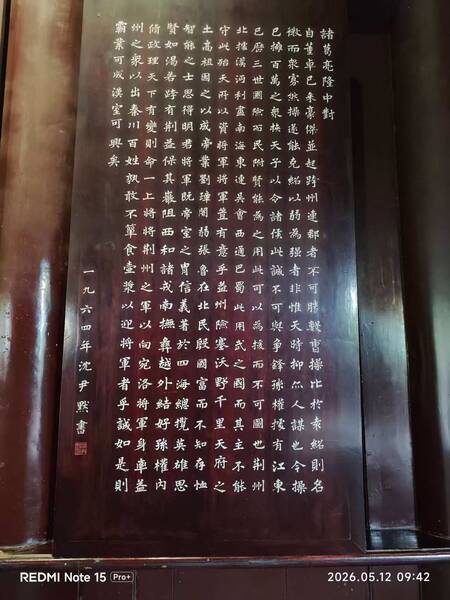 諸葛亮隆中對
自董卓已來豪傑並起跨州連郡者不可勝數曹操比於袁紹則名
微而眾寡然操遂能克紹以弱為強者非惟天時抑亦人謀也今操
已擁百萬之眾挾天子以令諸侯此誠不可與爭鋒孫權據有江東
已歷三世國險而民附賢能為之用此可以為援而不可圖也荊州
北據漢沔利盡南海東連吳會西通巴蜀此用武之國而其主不能
守此殆天所以資將軍將軍豈有意乎益州險塞沃野千里天府之
土高祖因之以成帝業劉璋闇弱張魯在北民殷國富而不知存恤
智能之士思得明君將軍既帝室之胄信義著於四海總攬英雄思
賢如渴若跨有荊益保其巖阻西和諸戎南撫彝越外結好孫權內
脩政理天下有變則命一上將將荊州之軍以向宛洛將軍身率益
州之眾以出秦川百姓孰敢不簞食壺漿以迎將軍者乎誠如是則
霸業可成漢室可興矣
一九六四年沈尹默書
REDMI Note 15 Pro+
2026.05.12 09:42